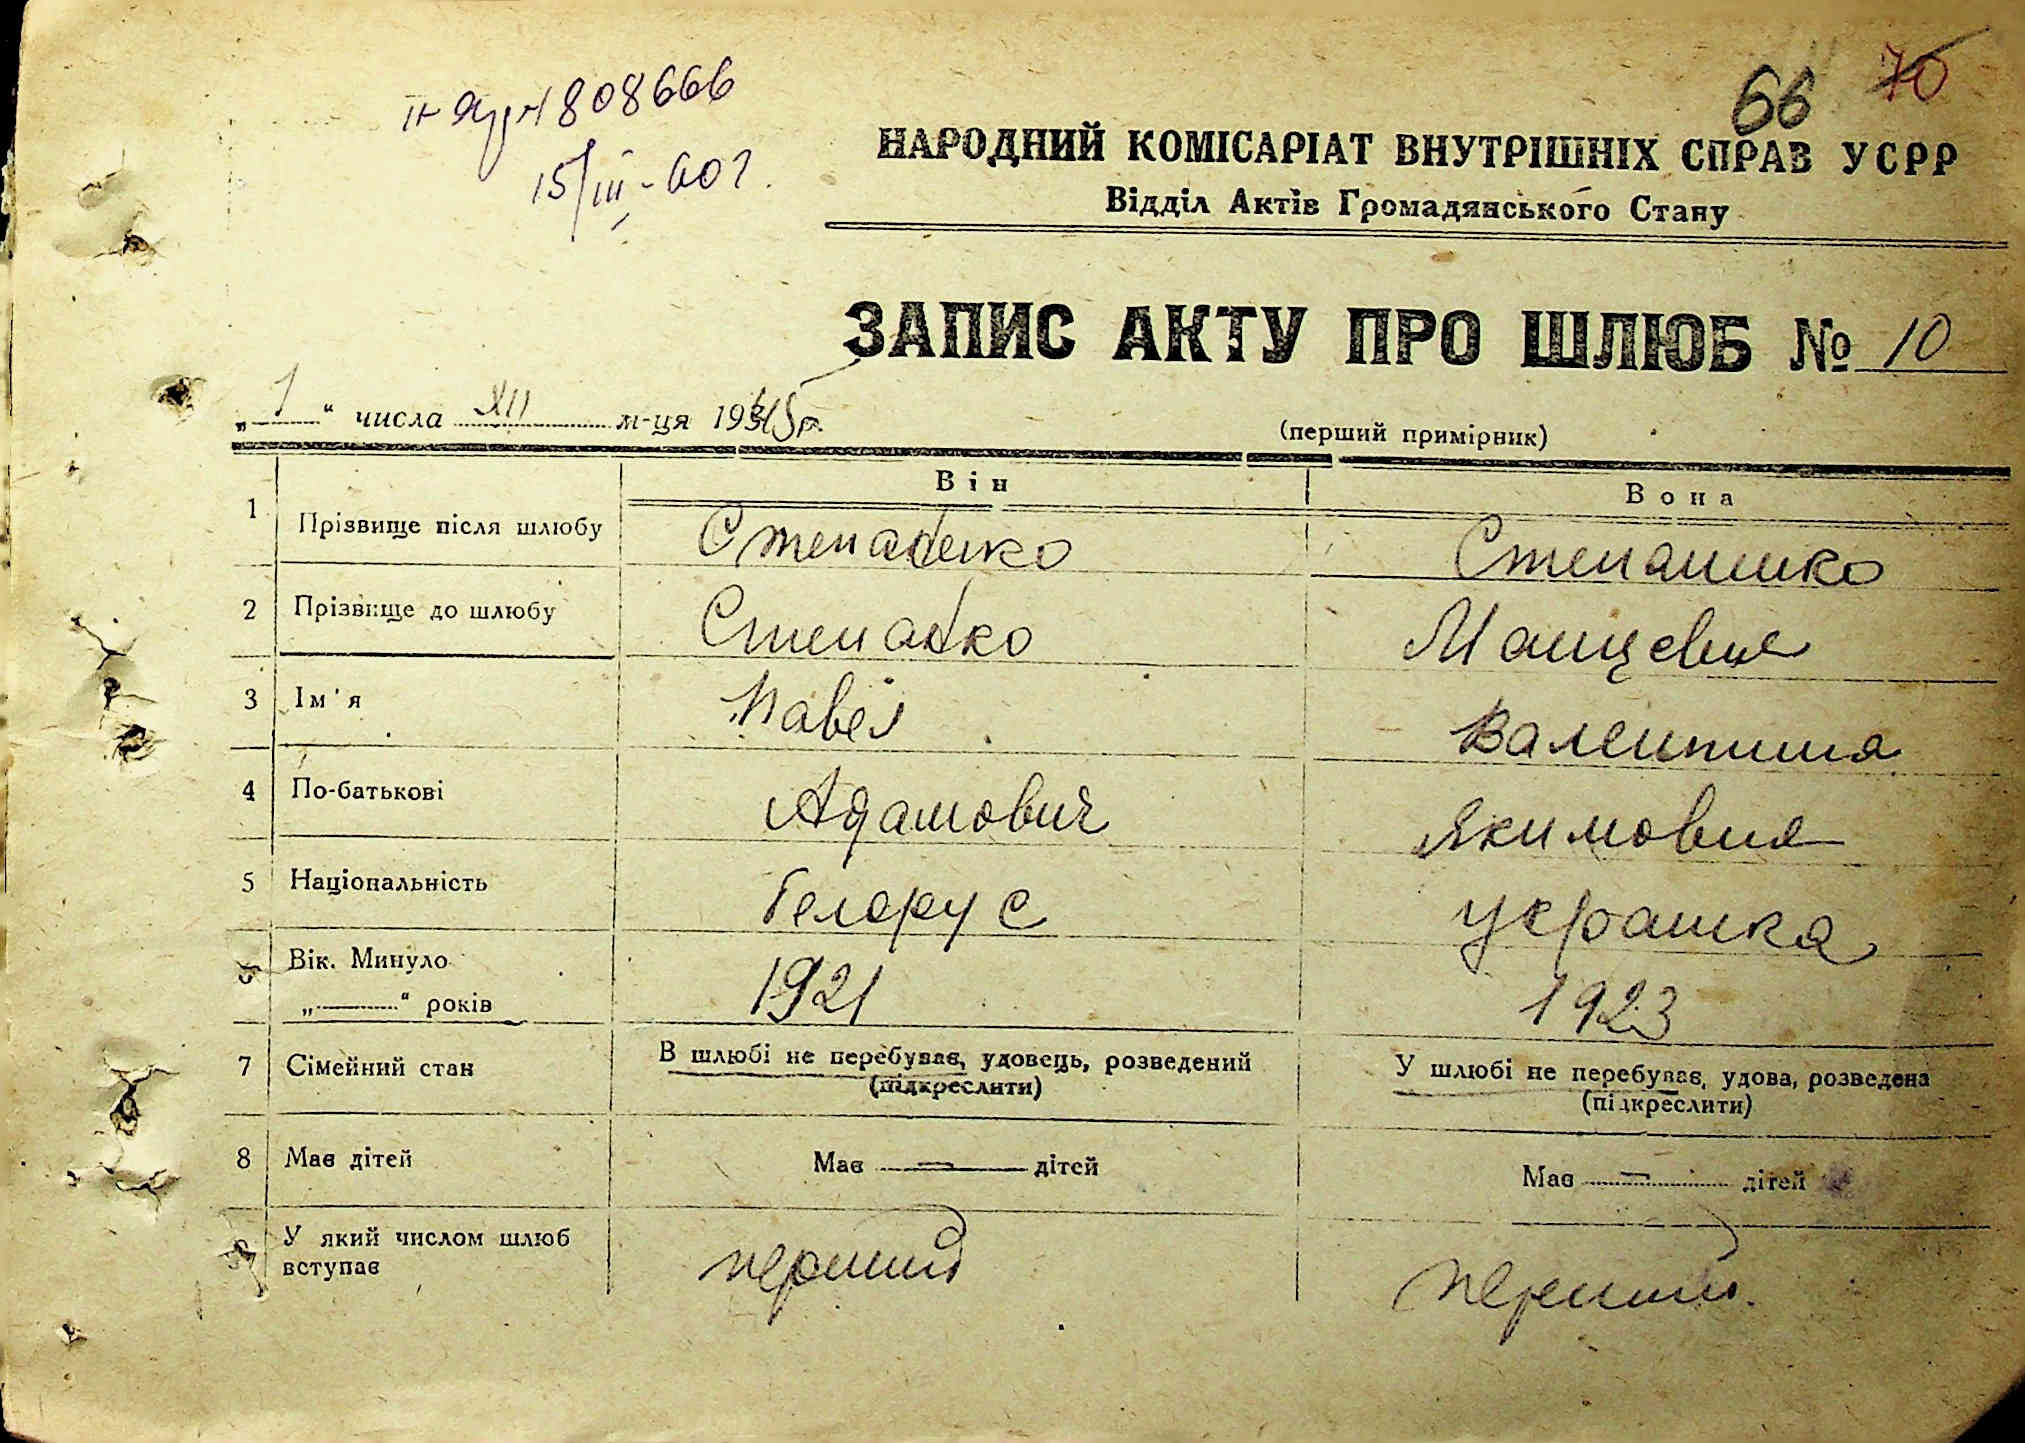 808666
66 70
15/III-60 г.
НАРОДНИЙ КОМІСАРІАТ ВНУТРІШНІХ СПРАВ УСРР
Відділ Актів Громадянського Стану
ЗАПИС АКТУ ПРО ШЛЮБ № 10
„1“ числа XII м-ця 1945 р.
(перший примірник)
Він Вона
1 Прізвище після шлюбу Степаненко Степаненко
2 Прізвище до шлюбу
3 Ім'я Павел Валентина
4 По-батькові Адамович Якимовна
5 Національність белорус украинка
6 Вік. Минуло
„ “ років 1921 1923
7 Сімейний стан В шлюбі не перебував, удовець, розведений У шлюбі не перебував, удова, розведена
(підкреслити) (підкреслити)
8 Має дітей Має — дітей Має — дітей
9 У який числом шлюб
вступає перший перший